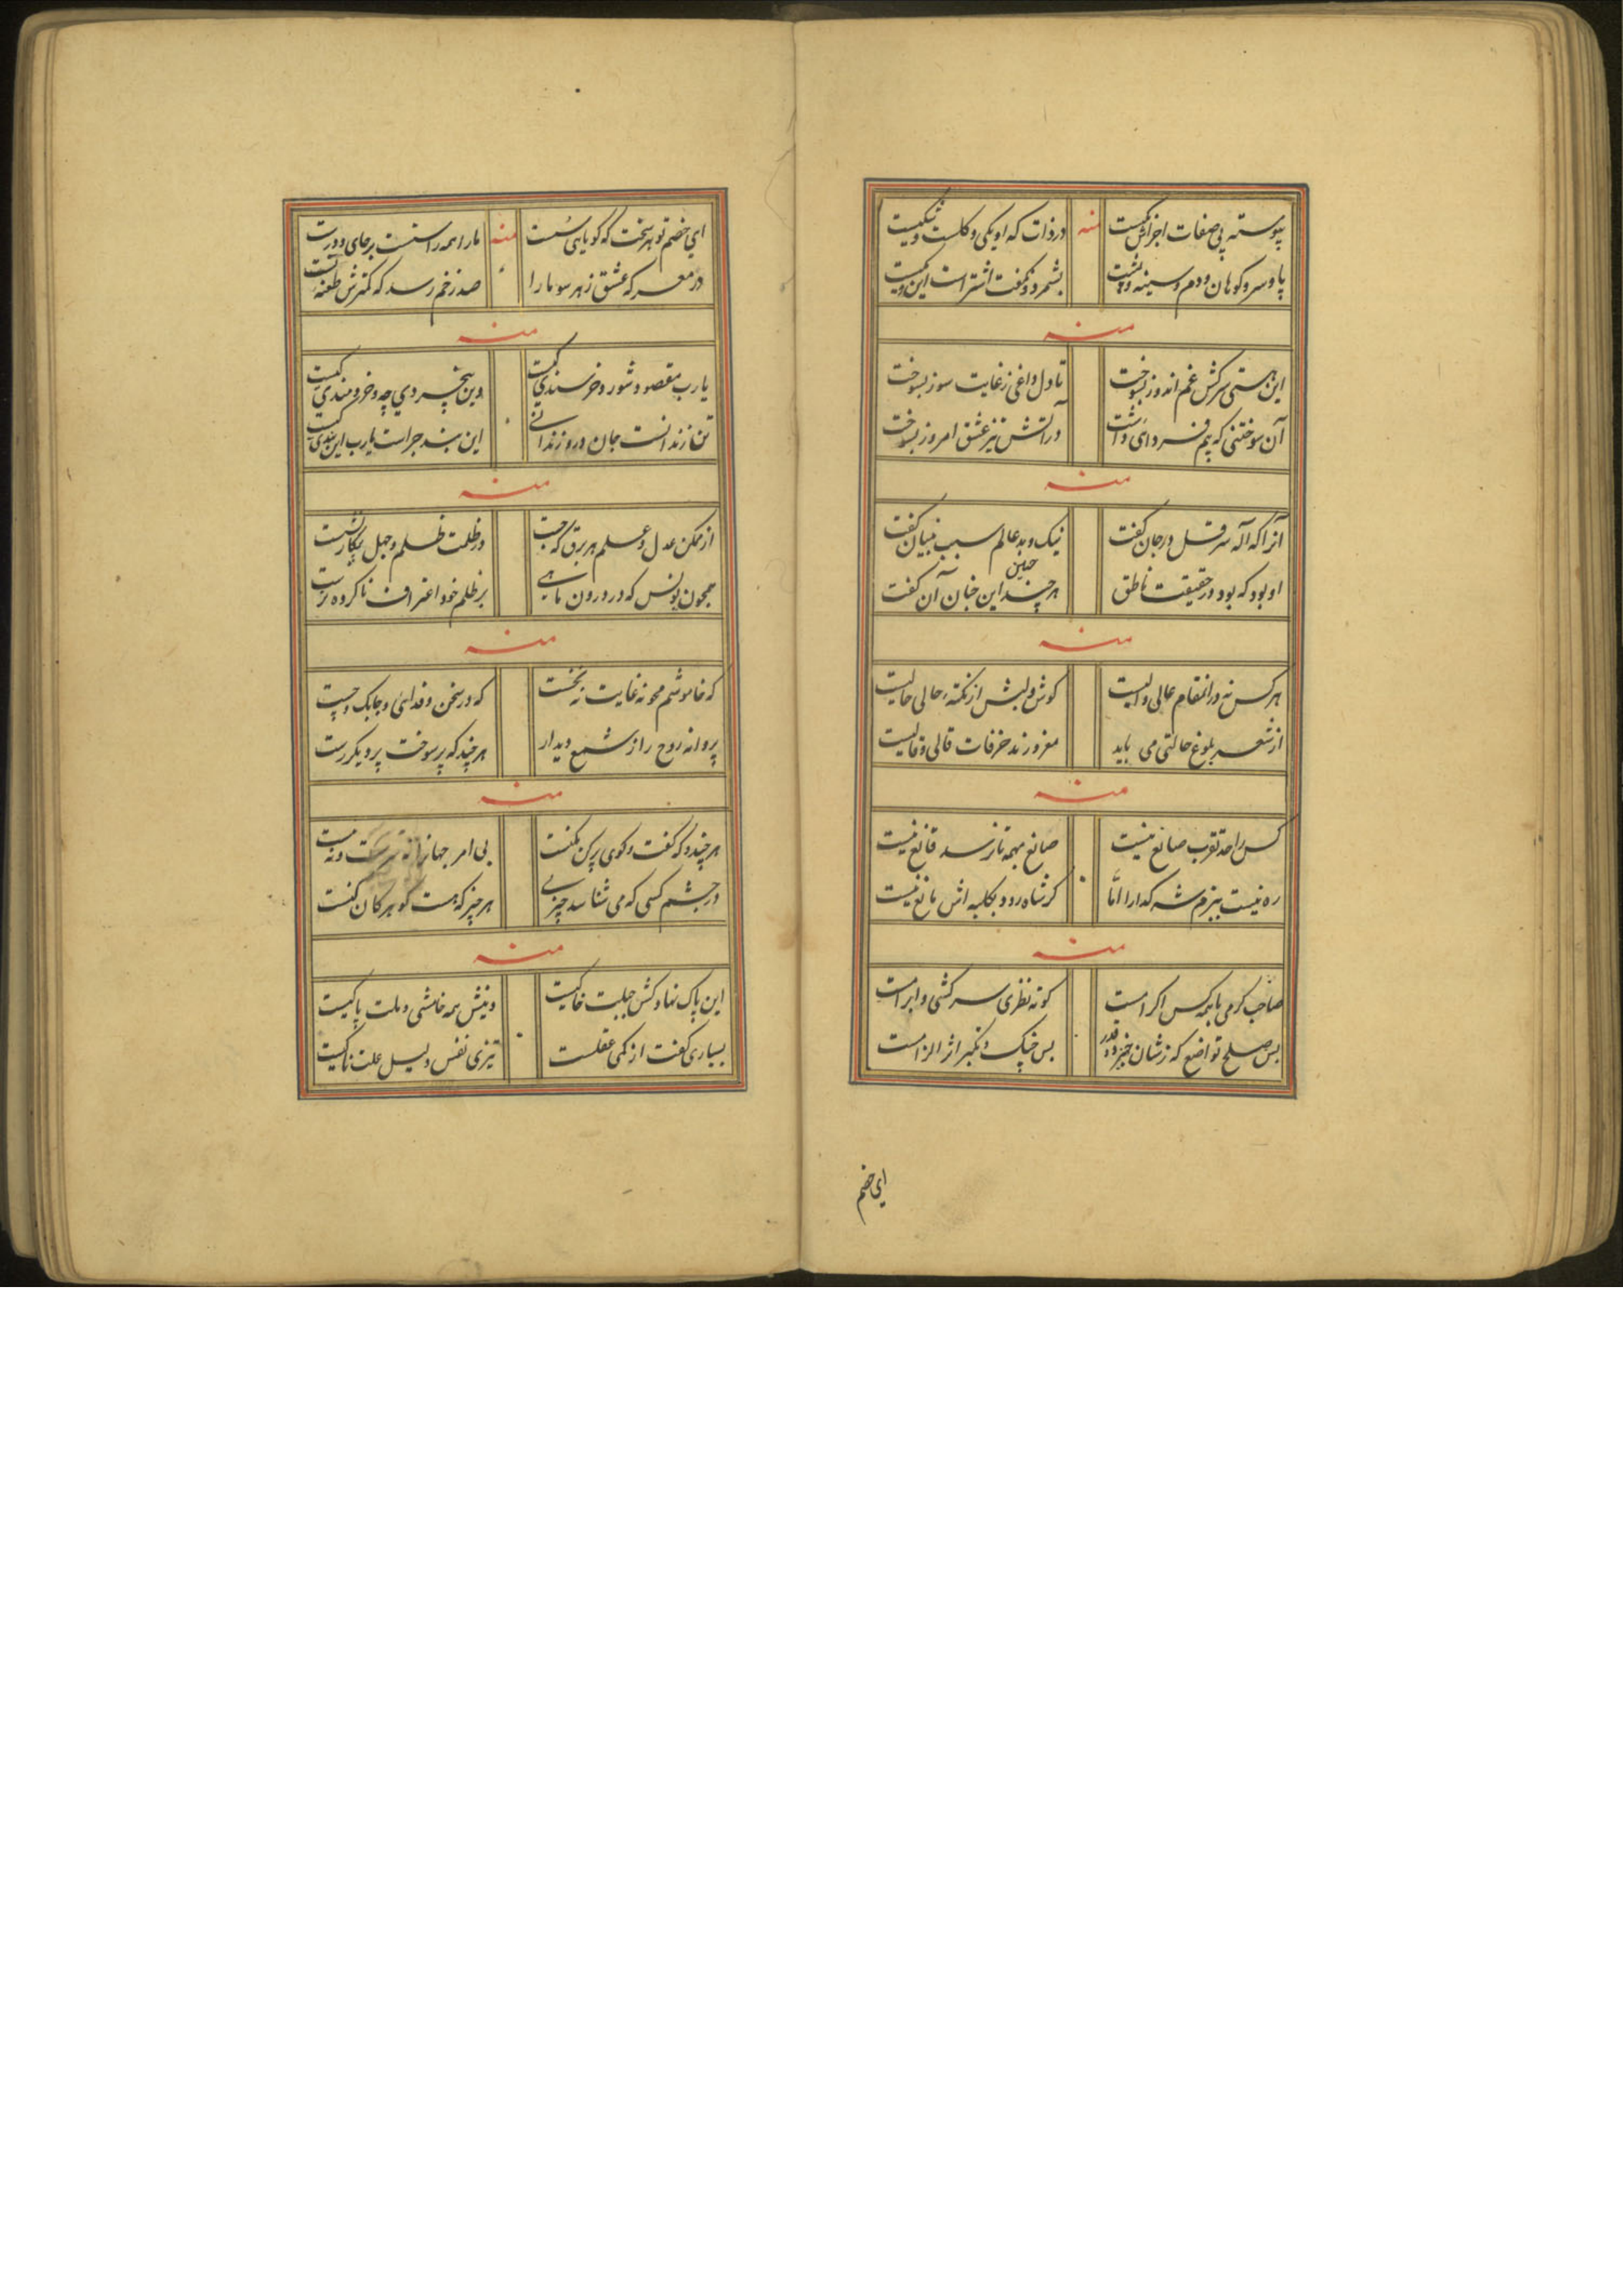 پیوسته پی صفات اجزاش یکیست منه در ذات که او یکی و کلست و شکیست
پا و سر و کوهان و دم و سینه و پشت بشمرد و نکفت اشتر است این و یکیست
منه
این هستی سرکش غم اندوز بسوخت تا دل داغی ز غایت سوز بسوخت
آن سوختنی که بیم فردای داشت در آتش تیز عشق امروز بسوخت
منه
آنرا که اله سر قل در جان کفت نیک و بد عالم سبب تبیان کفت
او بود که بود در حقیقت ناطق هر چند این چنان چنین آن کفت
منه
هر کس نه در انمقام عالی والیست کوش و لبش از نکته حالی خالیست
از شعر بلوغ حالتی می باید مغرور نه خرفات قالی و قالیست
منه
کس را حد تقرب صانع نیست صانع مهمه تا نرسد قانع نیست
ره نیست ببزم شه کدا را امّا کر شاه رود بکلبه اش مانع نیست
منه
صاحب کرمی با همه کس اکرامست کوته نظری سرکشی و ابرامست
بس صلح تواضع که ز شان خیزد و قدر بس جنک و تکبر اثر الزامست
ای خصم
ای خصم تو هر سخت که کویایی سست منه ما را همه راستست بر جای و درست
در معرکه عشق ز هر سو ما را صد زخم رسد که کمترش طعنه تست
منه
یارب مقصود شور و خرسندی کیست وین بیخردی چه و خردمندی کیست
تن زندانست جان درو زندانی این بند چراست یارب این بندی کیست
منه
از ممکن عدل و علم هر برق که جست در ظلمت ظلم و جهل بیکار نشست
همچون یونس که در درون ماهی بر ظلم خود اعتراف ناکرده نرست
منه
که خاموشم محو نه غایت نه نخست که در سخن و فدائی و چابک و چست
پروانه روح را ز شمع دیدار هر چند که پر سوخت پر دیکر رست
منه
هر چند که کفت و کوی پرکن بکفت بی امر جهانرا نه و نه
در چشم کسی که می شناسد چیزی هر چیز که هست کوهر کان کنت
منه
این پاک نهاد کش جبلت خاکیست دینش همه خامشی و ملت پاکیست
بسیاری کفت از کمی عقلست تیزی نفس دلیل علت ناکیست